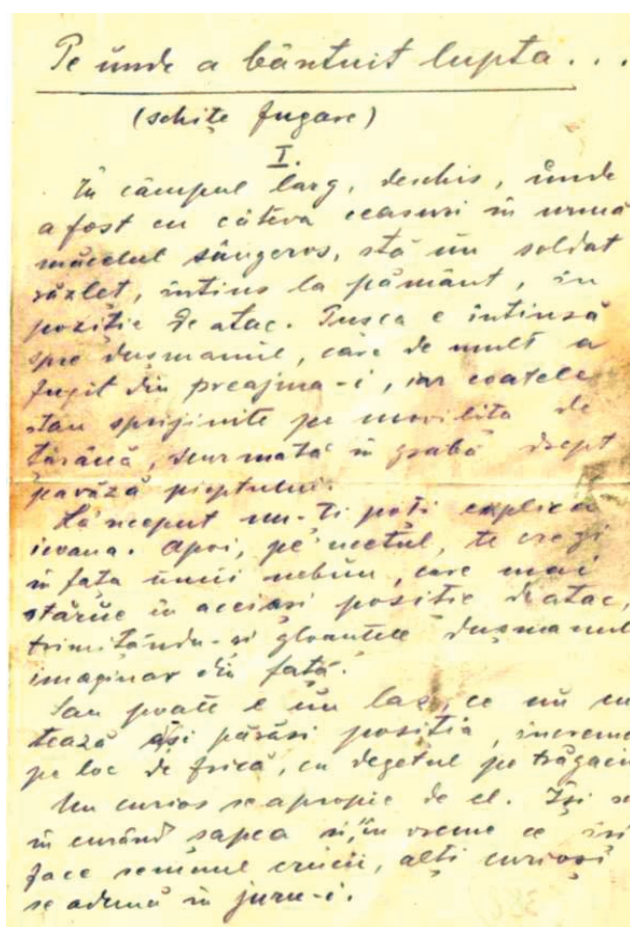 Pe unde a bântuit lupta...
(schițe fugare)
I.
În câmpul larg, deschis, unde
a fost cu câteva ceasuri în urmă
măcelul sângeros, stă un soldat
răzleț, întins la pământ, în
poziție de atac. Pușca e întinsă
spre dușmanul, care de mult a
fugit din preajma-i, iar coatele
stau sprijinite pe movilița de
țărână, scurmată în grabă drept
pavăză pieptului.
La'nceput nu-ți poți explica
icoana. Apoi, pe'ncetul, te crezi
în fața unui nebun, care mai
stărue în aceiași poziție de atac,
trimițându-și gloanțele dușmanul
imaginar din față.
Sau poate e un laș, ce nu cu
tează ași părăsi poziția, increme
pe loc de frică, cu degetul pe trăgaciu
Un curios se apropie de el. Își
în curând șapca și, în vreme ce își
face semnul crucii, alți curioși
se adună în juru-i.